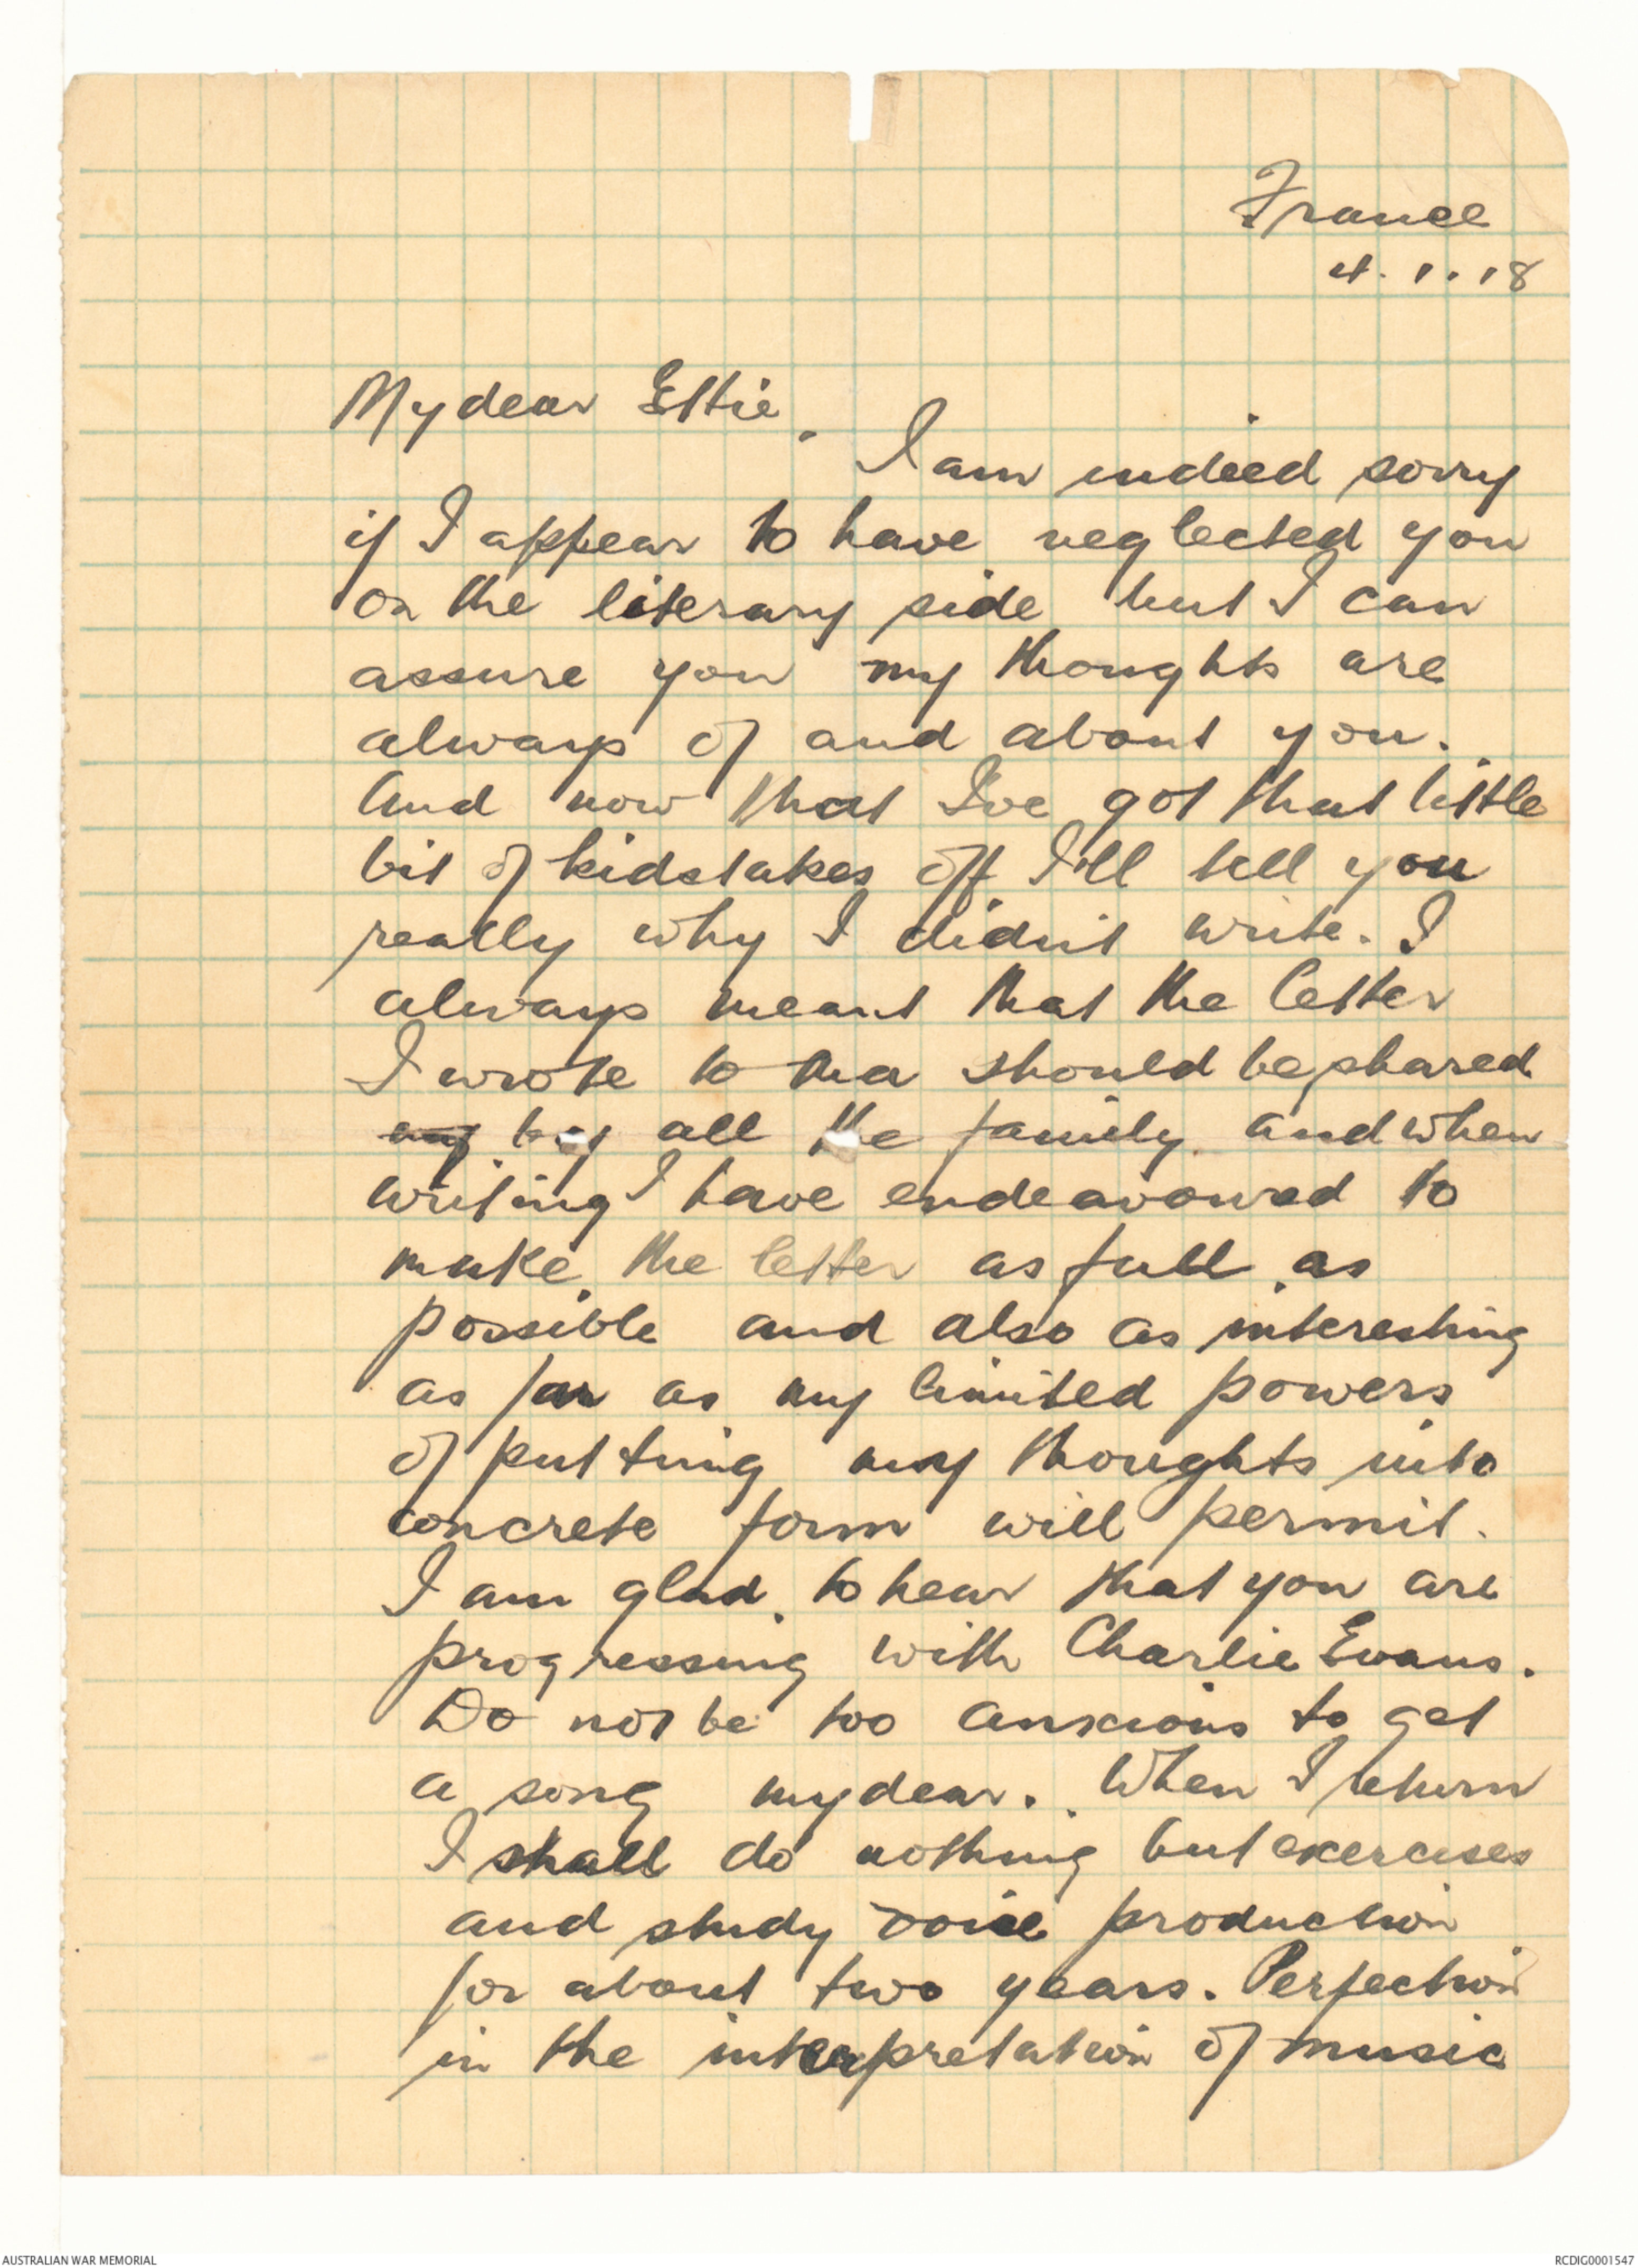 France
4.1.18
My dear Ettie.
I am indeed sorry
if I appear to have neglected you
on the literary side but I can
assure you my thoughts are
always of and about you.
And now that I've got that little
bit of kidstakes off I'll tell you
really why I didn't write. I
always meant that the letter
I wrote to ma should be shared
by all the family and when
writing I have endeavoured to
make the letter as full as
possible and also as interesting
as far as my limited powers
of putting my thoughts into
concrete form will permit.
I am glad to hear that you are
progressing with Charlie Evans.
Do not be too anxious to get
a song my dear. When I return
I shall do nothing but exercises
and study voice production
for about two years. Perfection
in the interpretation of music
AUSTRALIAN WAR MEMORIAL
RCDIG0001547